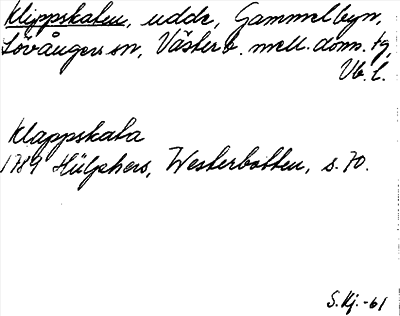 Klippskaten, udde, Gammelbyn,
Lövångers sn, Västerb. mell. doms. tg,
Vb. l.
Klappskata
1789 Hülphers, Westerbotten, s. 70.
S. Kj. -61